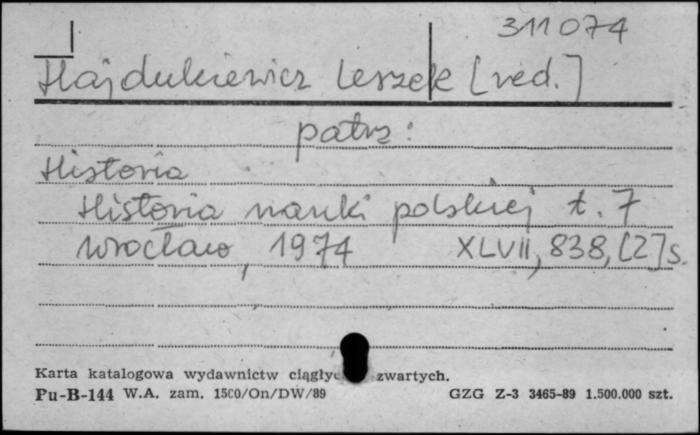 311074
Hajdukiewicz Leszek [red.]
patrz:
Historia
Historia nauki polskiej t. 7
Wrocław, 1974 XLVII, 838, [2] s.
Karta katalogowa wydawnictw zwartych.
Pu-B-144 W.A. zam. 1500/On/DW/89 GZG Z-3 3465-89 1.500.000 szt.